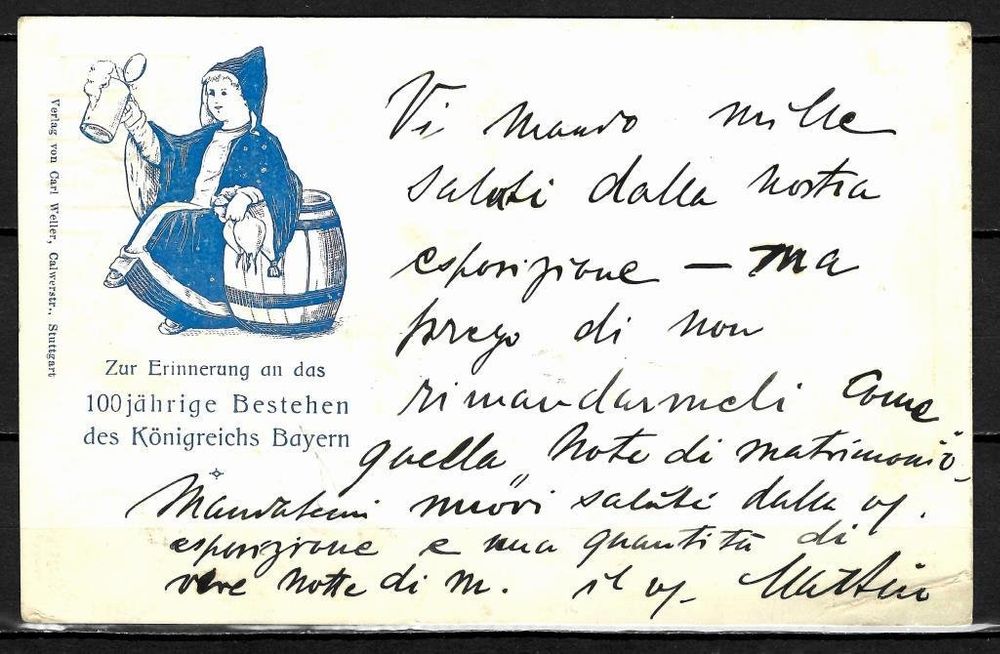 Verlag von Carl Weller, Calwerstr., Stuttgart
Zur Erinnerung an das
100jährige Bestehen
des Königreichs Bayern
Vi mando mille
saluti dalla nostra
esposizione — ma
prego di non
rimandarmeli come
quella "Note di matrimonio"
Mandatemi nuovi saluti dalla
esposizione e una quantità di
vere notte di m. il